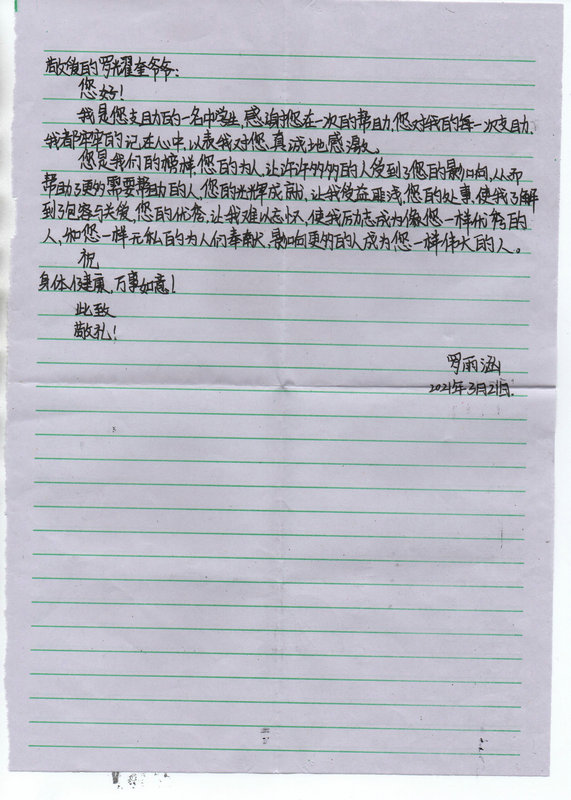 敬爱的罗耀奎爷爷:
您好!
我是您支助的一名中学生,感谢您在一次的帮助,您对我的每一次支助,
我都牢牢的记在心中,以表我对您真诚地感激。
您是我们的榜样,您的为人,让许许多多的人受到了您的影响,从而
帮助了更多需要帮助的人,您的光辉成就,让我受益匪浅,您的处事,使我了解
到了包容与关爱,您的优秀,让我难以忘怀,使我励志成为像您一样优秀的
人,和您一样无私的为人们奉献,影响更多的人成为您一样伟大的人。
祝
身体健康,万事如意!
此致
敬礼!
罗雨涵
2021年3月21日.